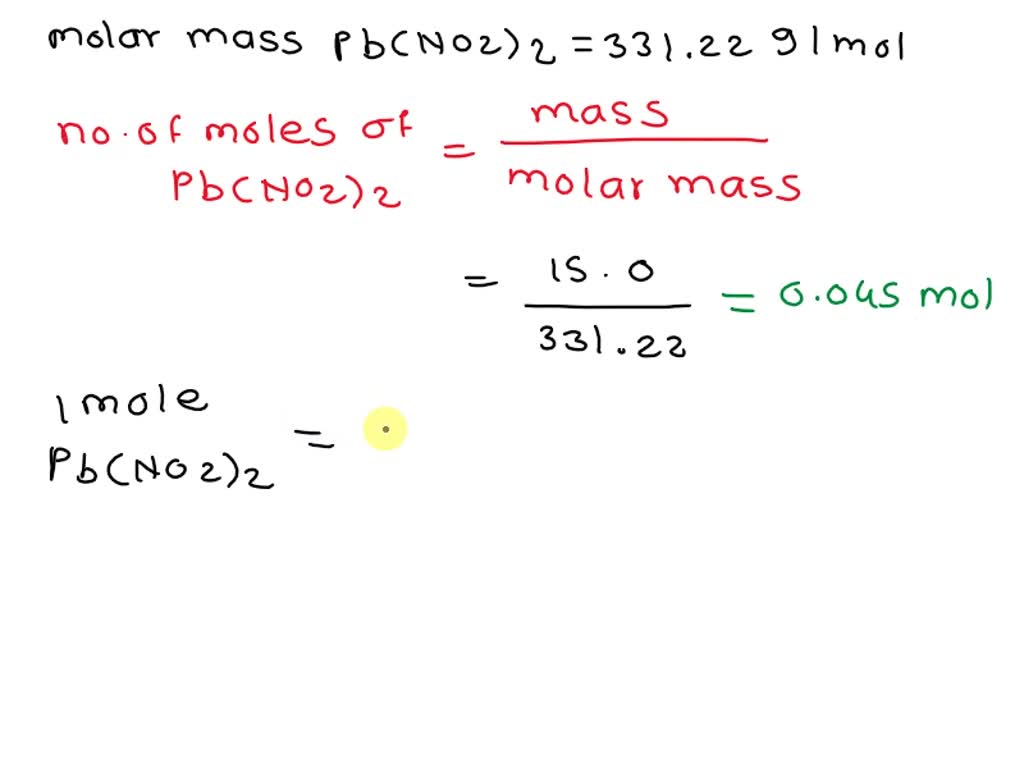 molar mass Pb(NO2)2 = 331.22 g/mol
no. of moles of Pb(NO2)2 = mass / molar mass
= 15.0 / 331.22 = 0.045 mol
1 mole
Pb(NO2)2 =